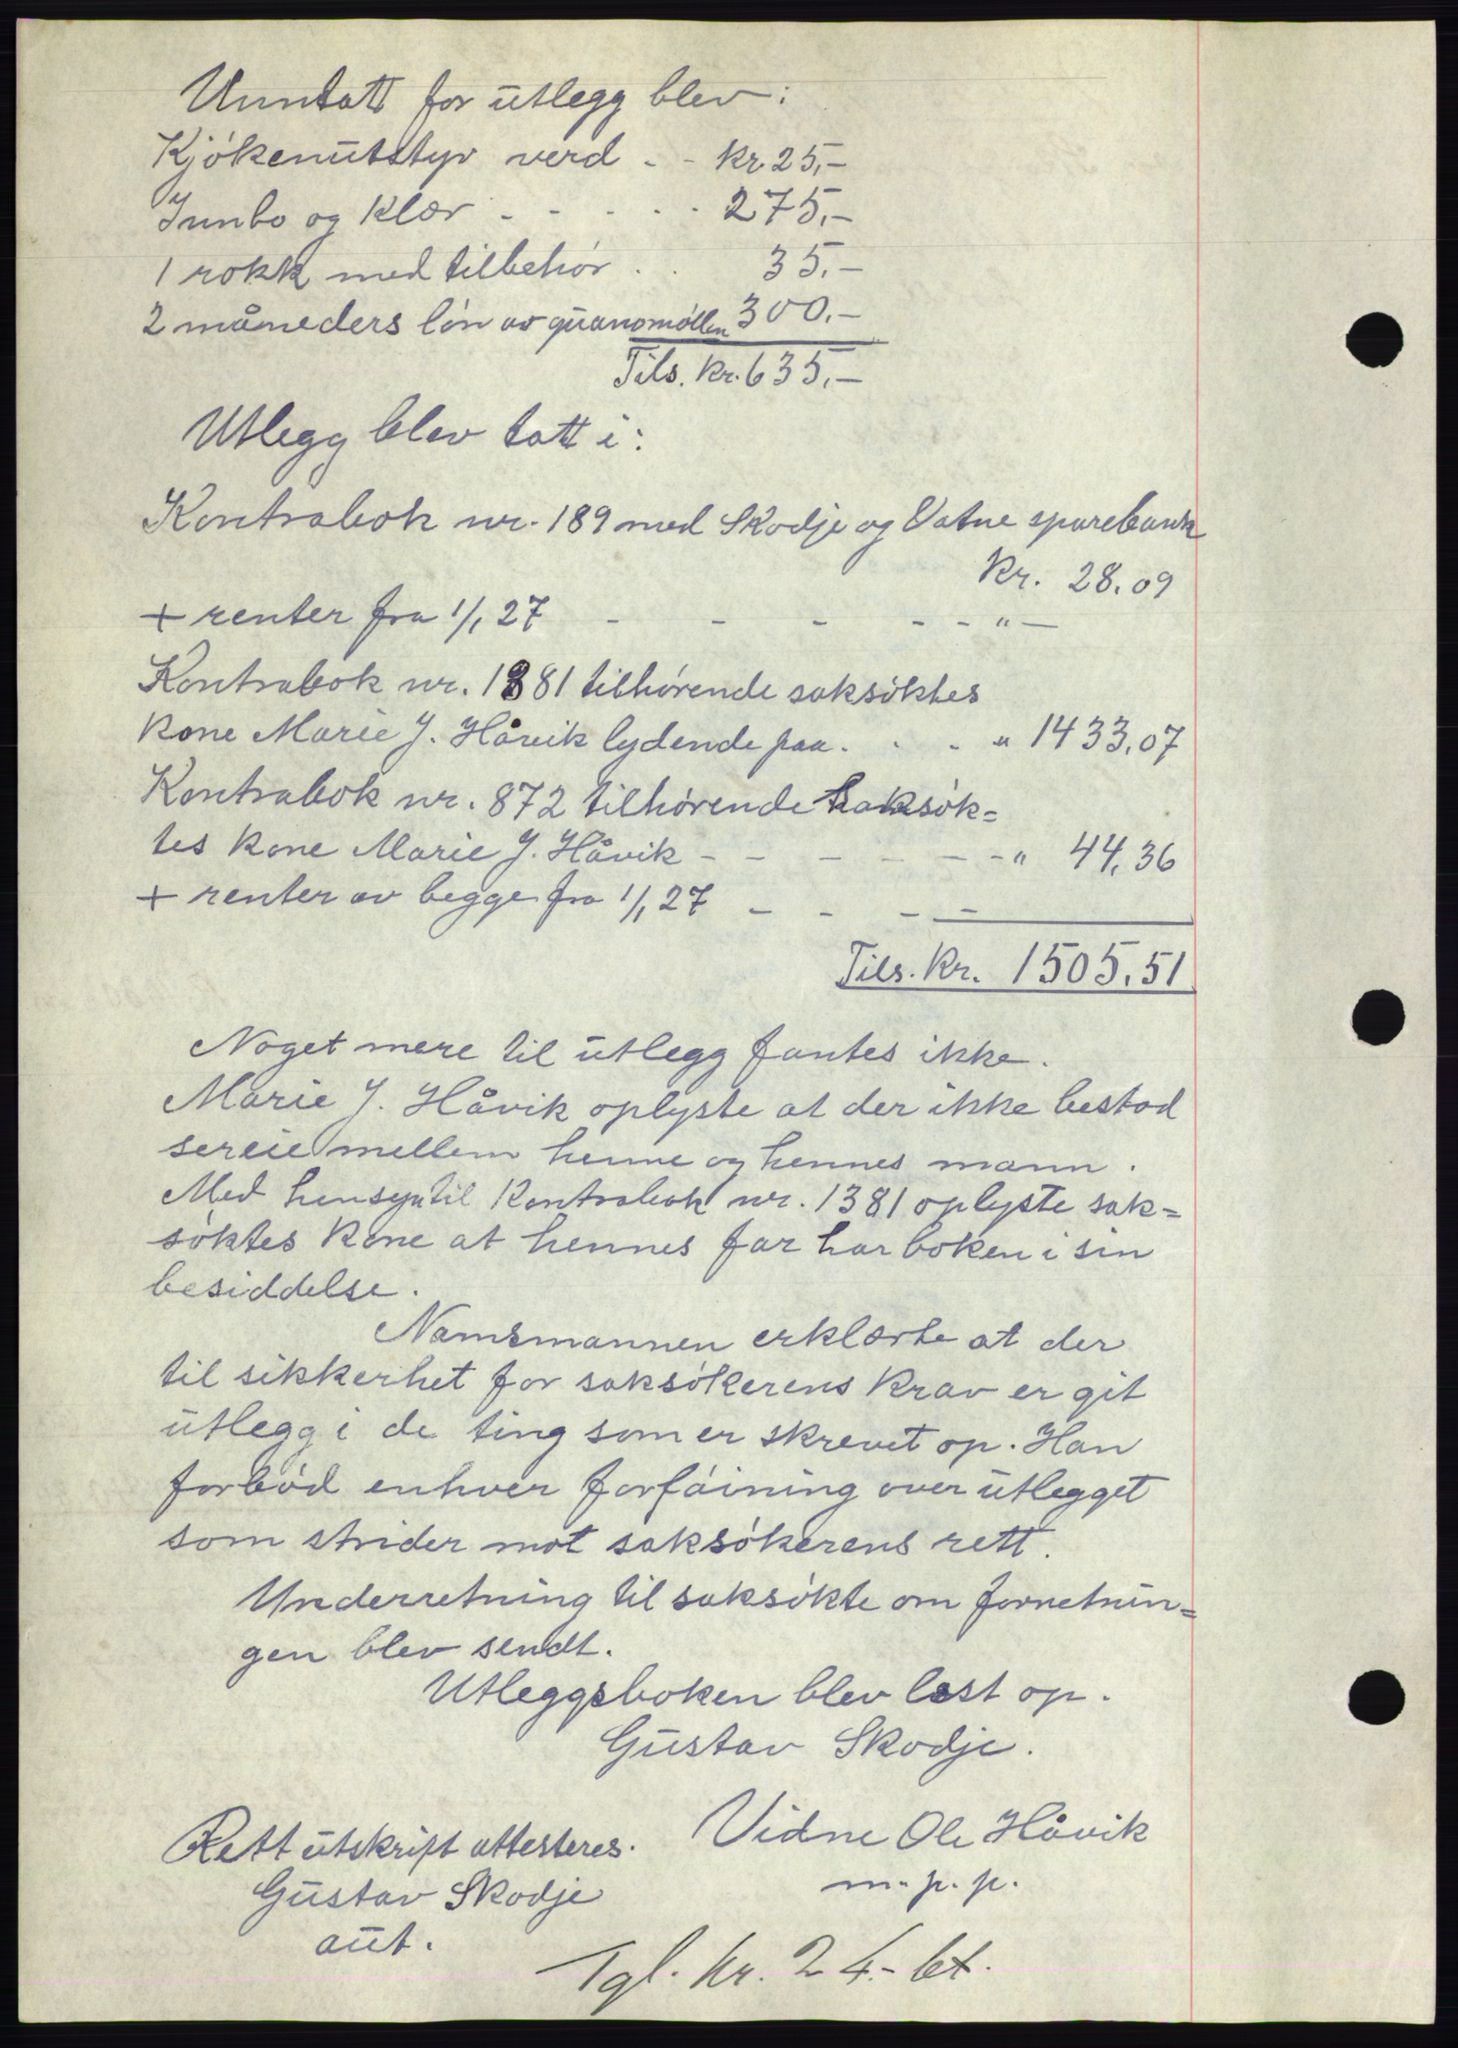 Unntatt for utlegg blev:
Kjökenutstyr verd - - kr. 25,-
Innbo og klær - - - - - 275,-
1 rokk med tilbehör . . 35,-
2 måneders lön av guanomöllen 300,-
Tils. kr. 635,-
Utlegg blev tatt i:
Kontrabok nr. 189 med Skodje og Vatne sparebank
kr. 28,09
+ renter fra 1/1 27 - - - - - " -
Kontrabok nr. 1381 tilhörende saksöktes
kone Marie J. Håvik lydende paa . . . " 1433,07
Kontrabok nr. 872 tilhörende saksök=
tes kone Marie J. Håvik - - - - - - " 44,36
+ renter av begge fra 1/1 27 - - - -
Tils. kr. 1505,51
Noget mere til utlegg fantes ikke.
Marie J. Håvik oplyste at der ikke bestod
sereie mellem henne og hennes mann.
Med hensyn til kontrabok nr. 1381 oplyste sak=
söktes kone at hennes far har boken i sin
besiddelse.
Namsmannen erklærte at der
til sikkerhet for saksökerens krav er git
utlegg i de ting som er skrevet op. Han
forbød enhver forföining over utlegget
som strider mot saksökerens rett.
Underretning til saksökte om forretnin=
gen blev sendt.
Utleggsboken blev lest op.
Gustav Skodje.
Rett utskrift attesteres. Vidne Ole Håvik
Gustav Skodje m. p. p.
aut.
Tgl. kr. 24.- bt.